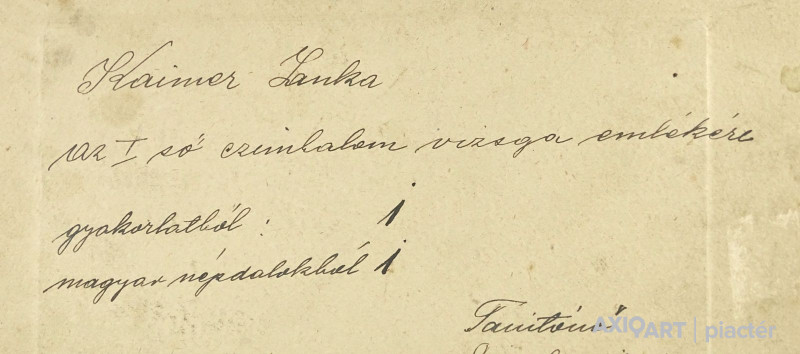 Kaimer Janka
az I ső czimbalom vizsga emlékére
gyakorlatból : 1
magyar népdalokból 1
Tanítónő
AXIOART | piactér